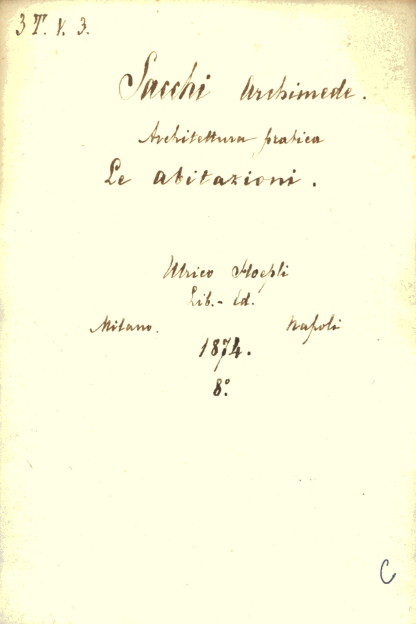 3 T. V. 3.
Sacchi Archimede.
Architettura pratica
Le abitazioni.
Ulrico Hoepli
Lib.- Ed.
Milano. Napoli
1874.
8°.
C